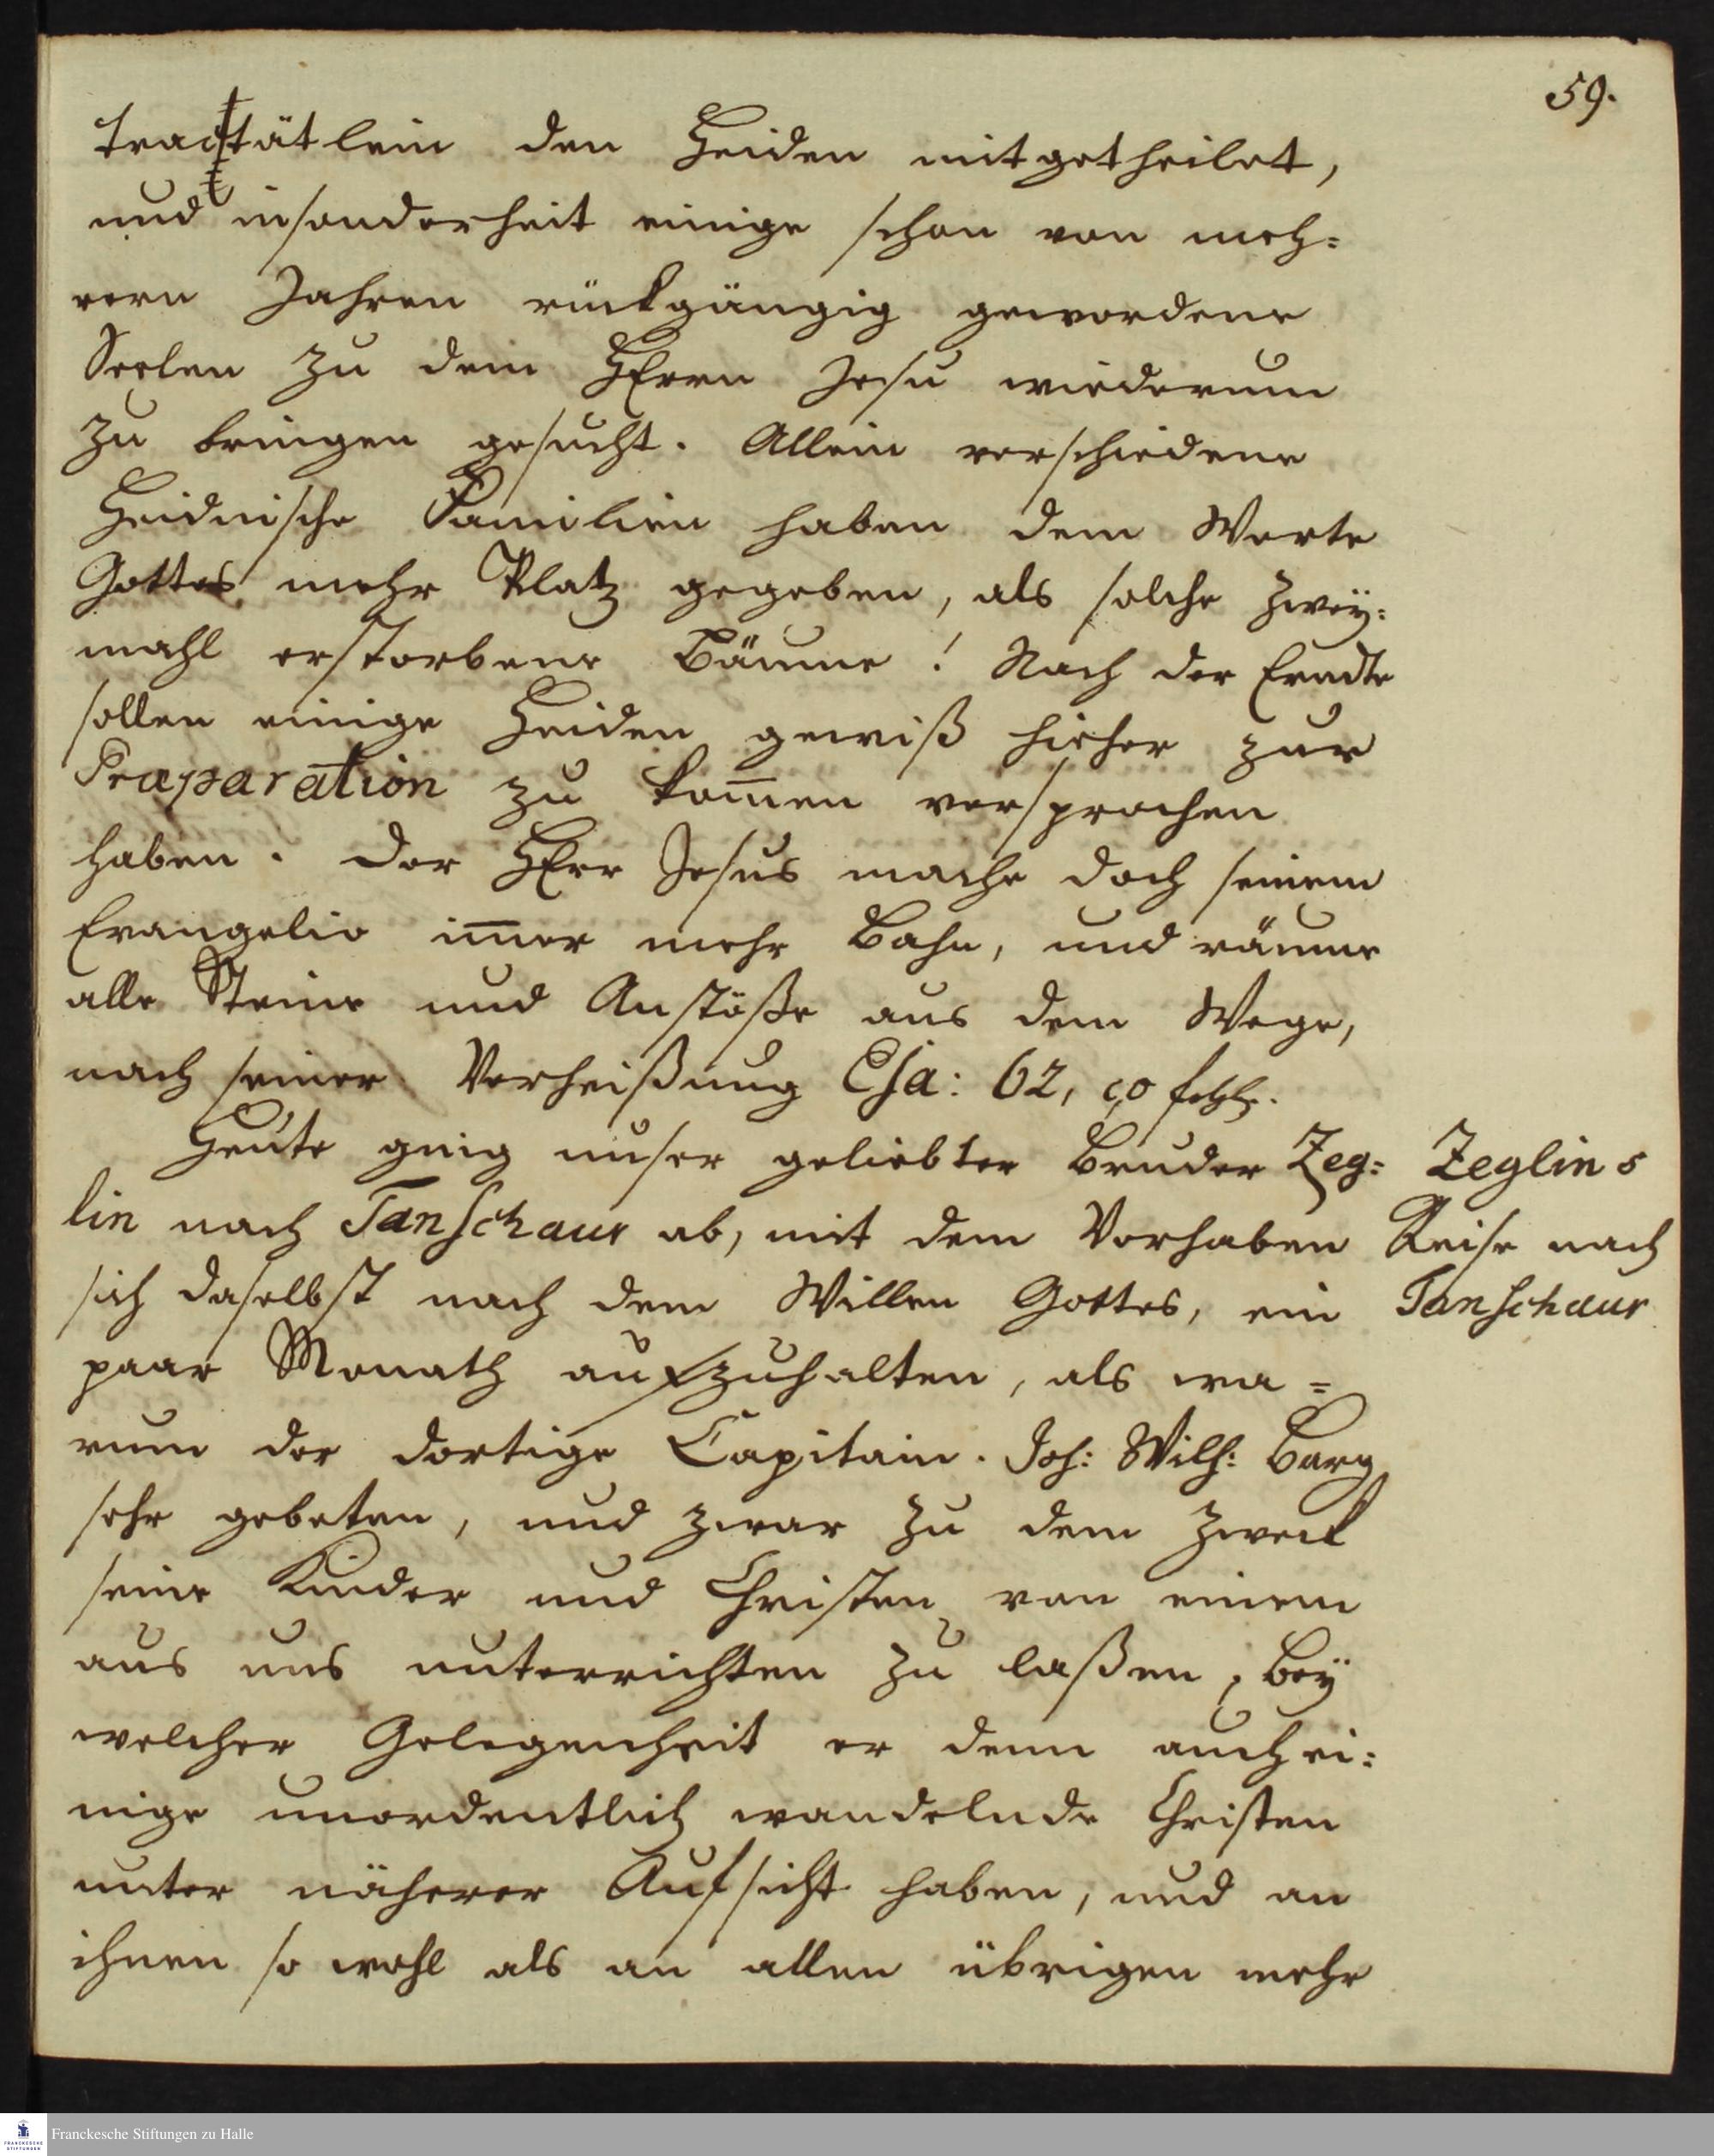 59.
tractätlein den Heiden mitgetheilet,
und insonderheit einige schon von meh=
rern Jahren rückgängig gewordene
Seelen zu dem HErrn Jesu wiederum
zu bringen gesucht. Allein verschiedene
Heidnische Familien haben dem Worte
Gottes mehr Platz gegeben, als solche zwey=
mahl erstorbene Bäume! Nach der Erndte
sollen einige Heiden gewiß hieher zur
Præparation zu kom̅en versprochen
haben. Der HErr Jesus mache doch seinem
Evangelio im̅er mehr Bahn, und räume
alle Steine und Anstöße aus dem Wege,
nach seiner Verheißung Esa: 62,
Heute ging unser geliebter Bruder Zeg=
lin nach Tanschaur ab, mit dem Vorhaben
sich daselbst nach dem Willen Gottes, ein
paar Monath aufzuhalten, als wa=
rum der dortige Capitain. Joh: Wilh: Berg
sehr gebeten, und zwar zu dem Zweck
seine Kinder und Christen von einem
aus uns unterrichten zu laßen, bey
welcher Gelegenheit er denn auch ei=
nige unordentlich wandelnde Christen
unter näherer Aufsicht haben, und an
ihnen so wohl als an allen übrigen mehr
Zeglins
Reise nach
Tanschaur
Franckesche Stiftungen zu Halle
FRANCKESCHE
STIFTUNGEN